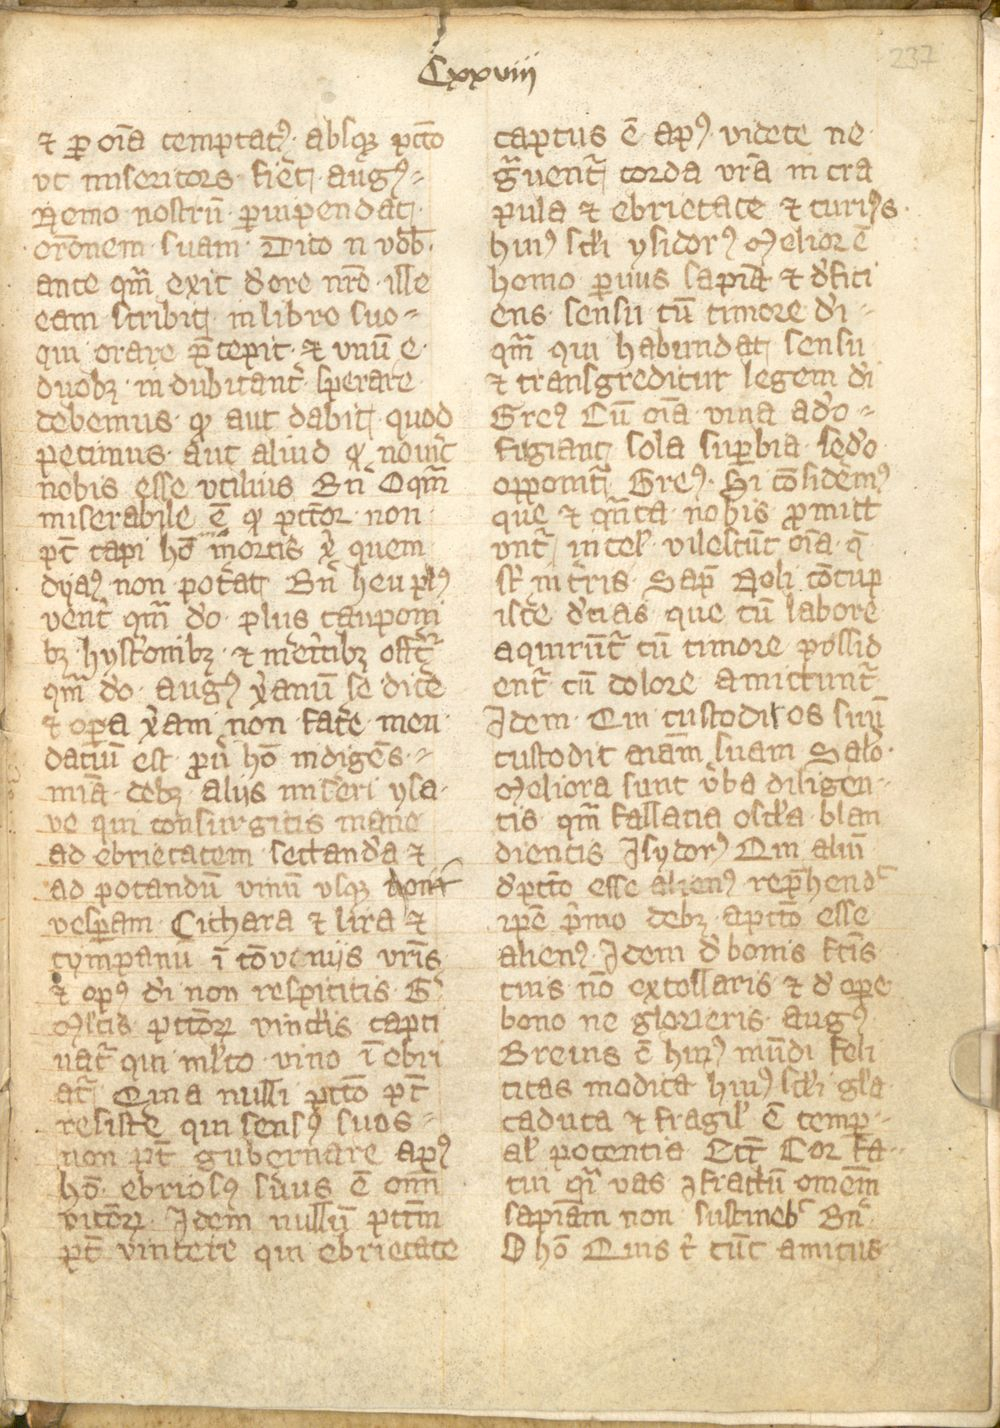 Cxxviii
237
⁊ ꝑ oīa temptatꝰ· absqꝫ pctō
vt misericors fieꝫ augꝰ
Nemo nostrū ꝑuipendat
orōnem suam· Dico n̄ vob̄·
ante qm̄ exit d'ore nr̄o ille
eam scribit in libro suo
qui orare p̄cepit· ⁊ vnū e
duobꝫ in dubitant̄ sperare
debemus· ꝙ aut dabit quod
petimus· aut aliud ꝙ nouit
nobis esse vtilius Bn̄ O qm̄
miserabile ē ꝙ pctōr non
pt̄ capi hō mortis
non Bn̄ heu plꝰ
qm̄ d'o plus cauponi
bꝫ hystrionibꝫ ⁊
qm̄ d'o· augꝰ xp̄anū se dic'e
⁊ oꝑa xp̄ani non fac'e men
daciū est hō indigēs
mīa· debꝫ alijs miseri ysa·
ve qui consurgitis mane
ad ebrietatem sectanda ⁊
ad potandū vinū vsqꝫ
vesꝑam Cithara ⁊ lira ⁊
tympanū ī cōviuijs vr̄is
⁊ opꝰ d'i non respicitis G
Mltis pctōꝝ vinclis capti
uat̄ qui mlto vino ī ebri
at̄ Quia nulli pctō pt̄
resist'e qui sensꝰ suos
non pt̄ gubernare apꝰ
hō ebriosꝰ s'uus ē omī
vitiōꝝ Idem nullū pctm̄
pt̄ vincere qui ebrietate
captus ē apꝰ videte ne
g̃uent̄ corda vr̄a in cra
pula ⁊ ebrietate ⁊ curis
huiꝰ scli ysidorꝰ Melior ē
homo ꝑuus sapiā ⁊ d'fici
ens sensu cū timore d'i
qm̄ qui habundat sensu
⁊ transgreditur legem d'i
Greꝰ Cū oīa vitia a d'o
fugiant sola suꝑbia se d'o
opponit Greꝰ· Si cōsidemꝰ
que ⁊ qn̄ta nobis ꝓmitt
vnt̄ in cel' vilescūt oīa q̄
st̄ in t̄ris Sap̄ Noli cōcup
isce d'cias que cū labore
aquirūt̄ cū timore possid
ent̄ cū dolore amictunt̄
Idem Qui custodit os suū
custodit aīam suam Salō·
Meliora sunt v'ba diligen
tis qm̄ fallacia oscla blan
dientis Isydorꝰ Qui aliū
d'pctō esse alienꝰ rep̄hend'
ip̄e p̄mo debꝫ apctō esse
alienꝰ Idem d' bonis fc̄is
tuis nō extollaris ⁊ d' oꝑe
bono ne glorieris augꝰ
Breuis ē huiꝰ mūdi feli
citas modica huiꝰ scli gla
caduca ⁊ fragil' ē temp
al' potentia Ecc̄ Cor fa
tui q̄i vas ꝯfractū omēm
sapiam non sustineb' Bn̄
O hō Quis t' tūc amicus